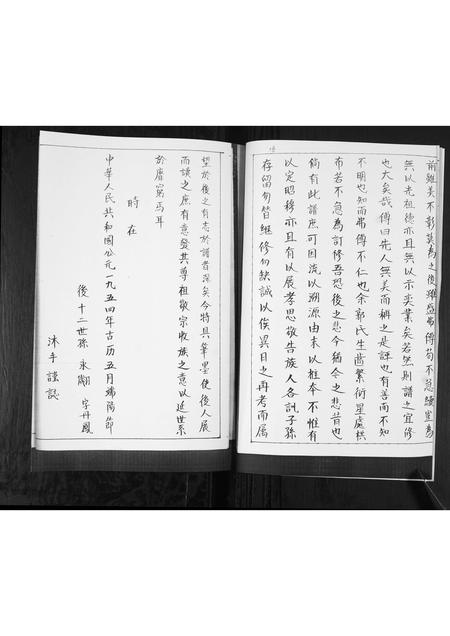 前雖美不彰莫為之後雖盛弗傳苟不急續豈為
無以光祖德亦且無以示奕業矣若然則譜之宜修
也大矣哉傳曰先人無美而稱之是誣也有善而不知
不明也知而弗傳不仁也余郭氏生齒繁衍星處棋
布若不急為訂修吾恐後之悲今猶今之悲昔也
倘有此譜庶可因流以溯源由末以推本不惟有
以定昭穆亦且有以展孝思敬告族人各訊子孫
存留勿替繼修勿缺誠以俟異日之再考而属
望於後之有志於譜者深矣今特具筆墨使後人展
而讀之庶有意發其尊祖敬宗收族之意以延世系
於靡窮焉耳
時在
中華人民共和國公元一九五四年古历五月端陽節
後十二世孫 永翮 字丹鳳
沐手謹誌